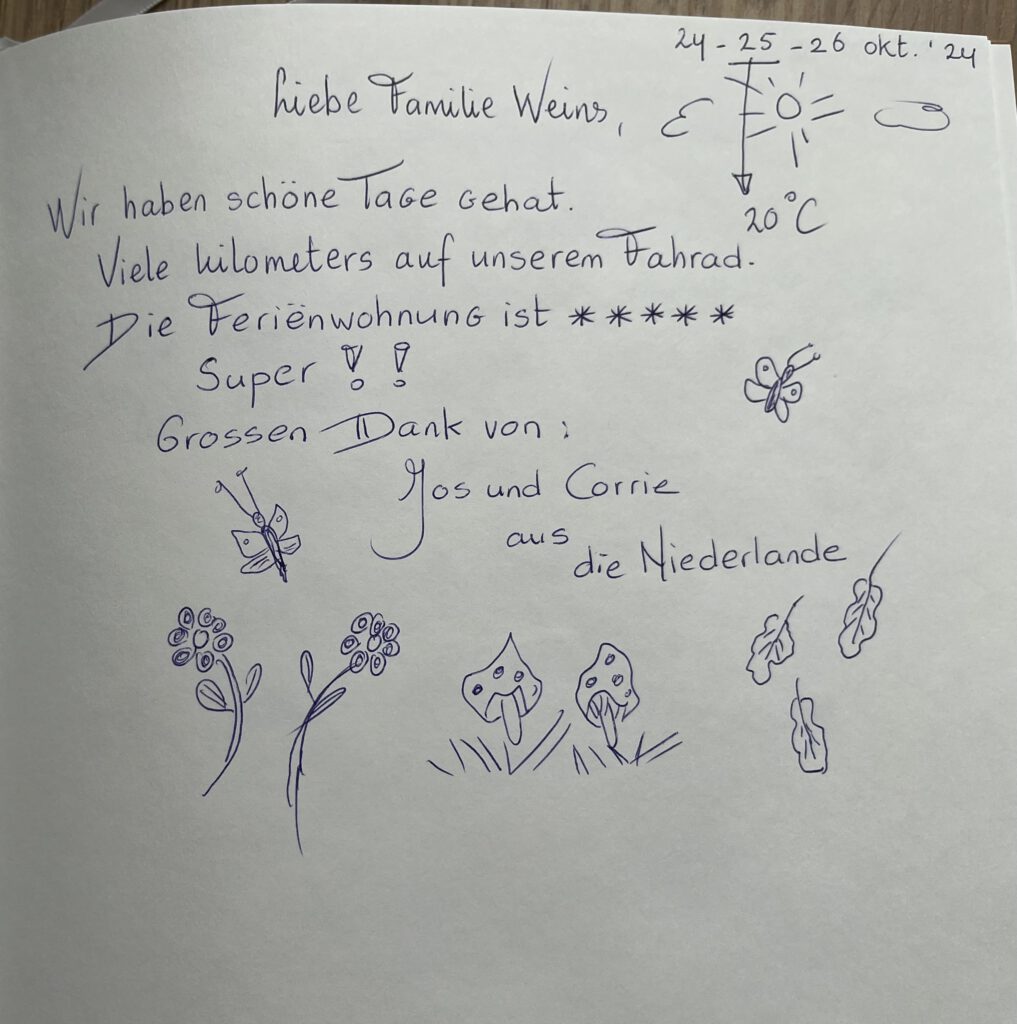 24 - 25 - 26 okt. '24
Liebe Familie Weins,
20°C
Wir haben schöne Tage gehat.
Viele kilometers auf unserem Fahrad.
Die Feriënwohnung ist *****
Super !!
Grossen Dank von:
Jos und Corrie
aus
die Niederlande